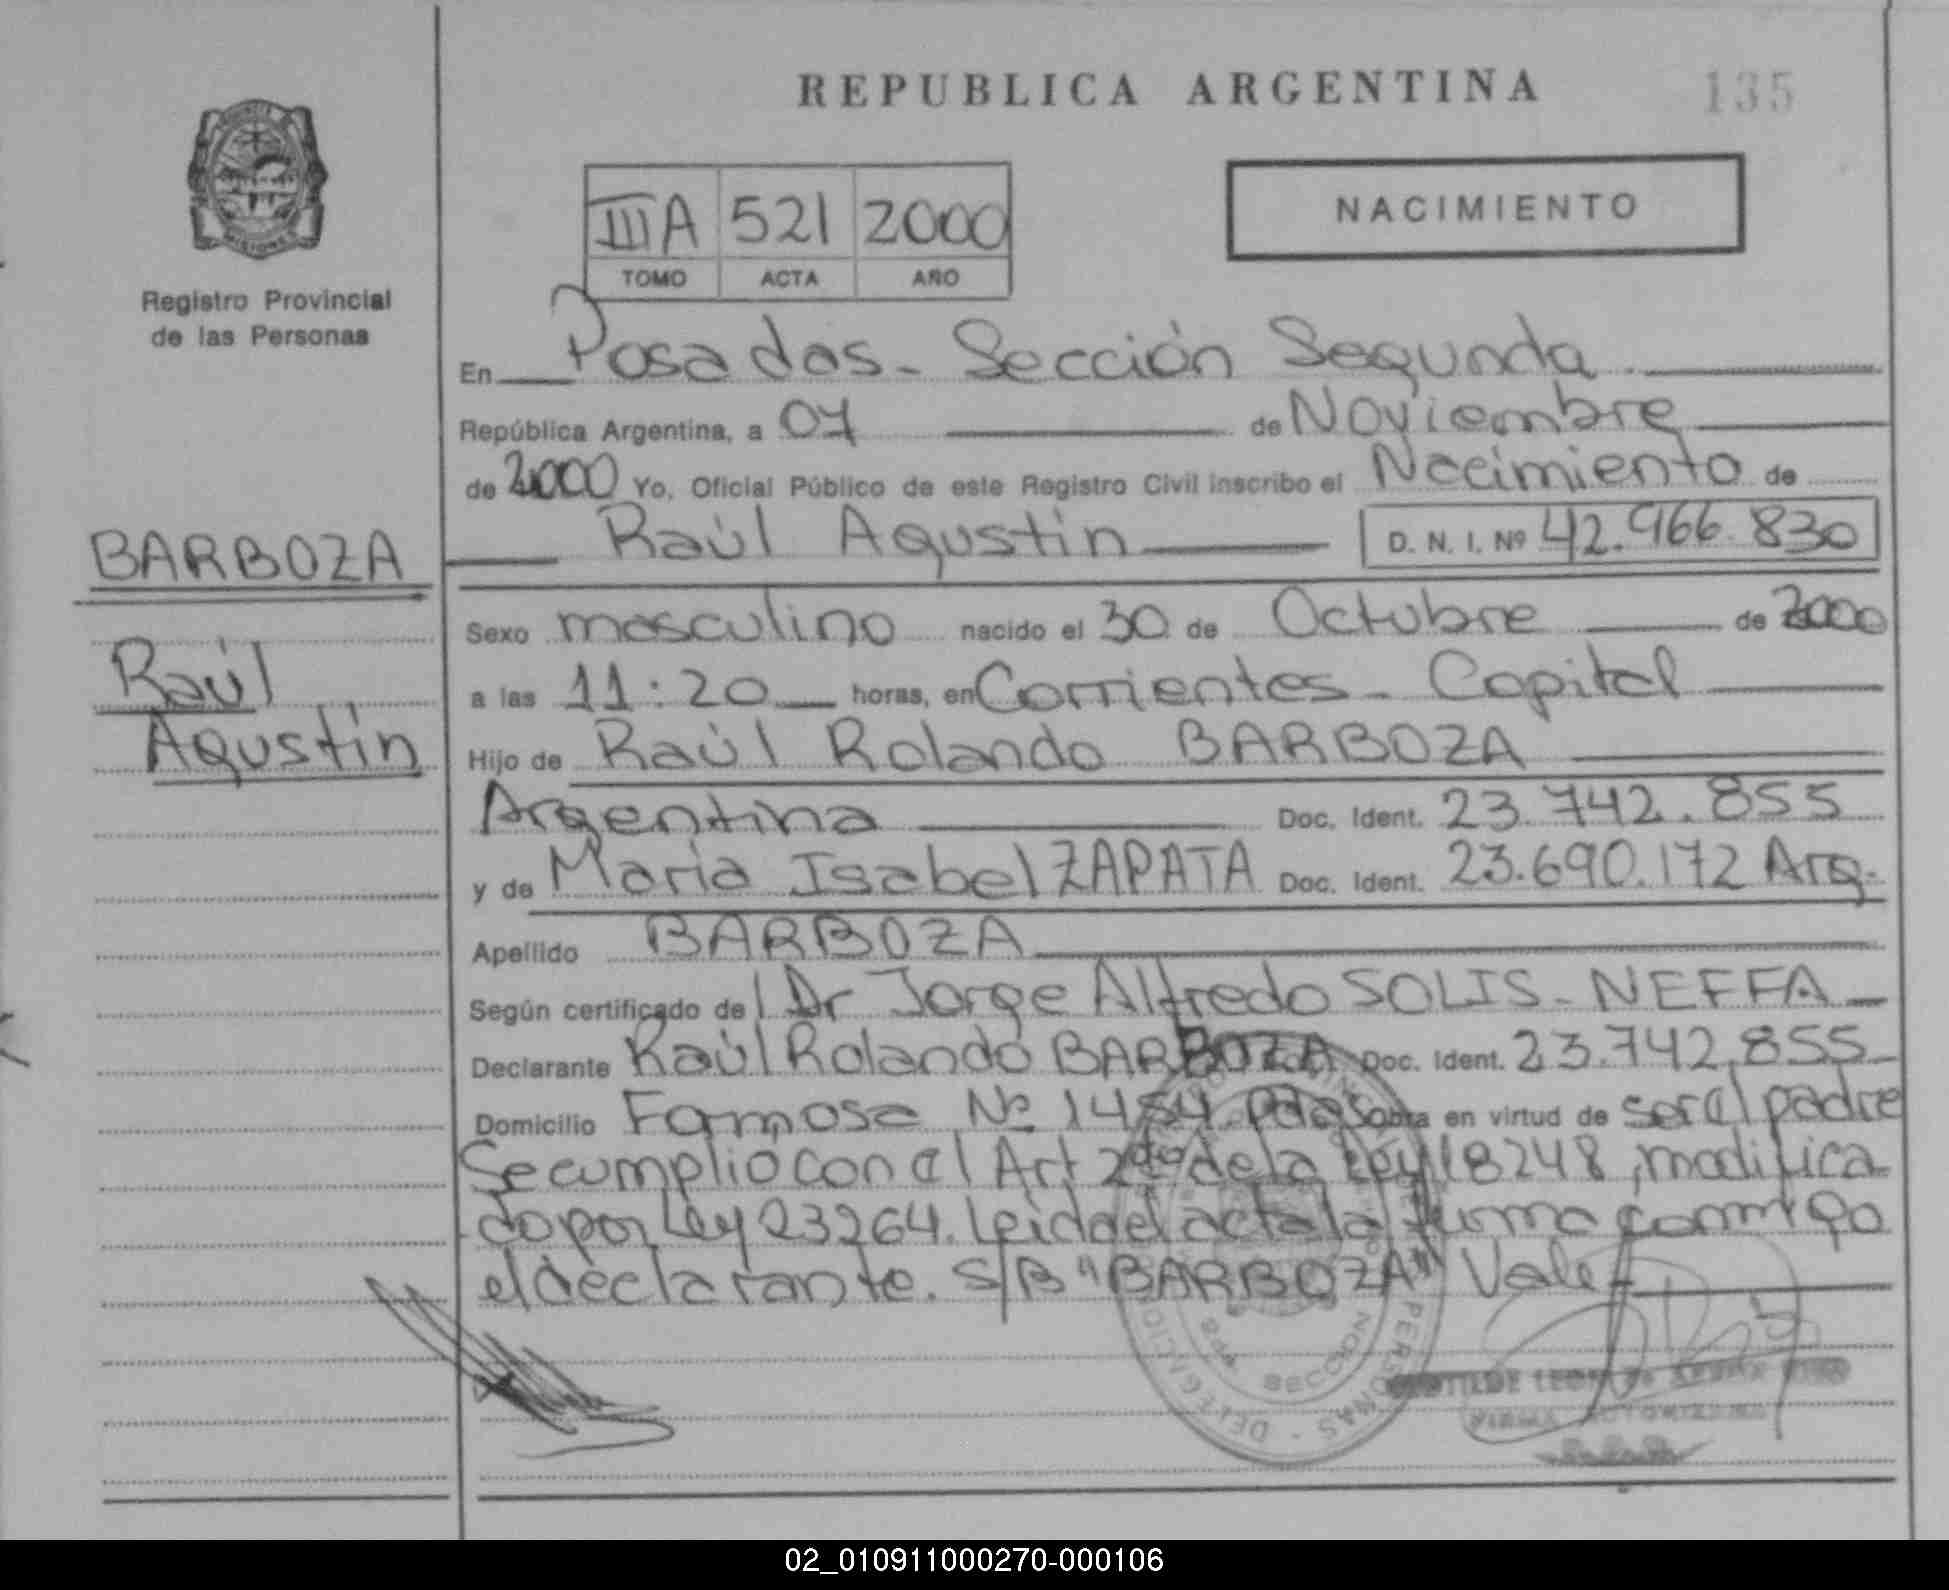 REPUBLICA ARGENTINA
135
PROVINCIA DE
MISIONES
Registro Provincial
de las Personas
IIIA 521 2000
TOMO ACTA AÑO
NACIMIENTO
En Posadas - Sección Segunda
República Argentina, a 07 de Noviembre
de 2000 Yo, Oficial Público de este Registro Civil inscribo el Nacimiento de
Raúl Agustin D. N. I. Nº 42.966.830
BARBOZA
Raúl
Agustin
Sexo masculino nacido el 30 de Octubre de 2000
a las 11:20 horas, en Corrientes - Capital
Hijo de Raúl Rolando BARBOZA
Argentina Doc. Ident. 23.742.855
y de Maria Isabel ZAPATA Doc. Ident. 23.690.172 Arg.
Apellido BARBOZA
Según certificado del Dr Jorge Alfredo SOLIS - NEFFA
Declarante Raúl Rolando BARBOZA Doc. Ident. 23.742.855
Domicilio Formosa Nº 1454 Pdas Obra en virtud de ser el padre
Se cumplio con el Art 2do de la Ley 18248, modifica
do por Ley 23264. Leida el acta la firma conmigo
el declarante. S/B "BARBOZA" Vale
DELEGACION
PERSONAS
SECCION
FIRMA AUTORIZADA
02_010911000270-000106